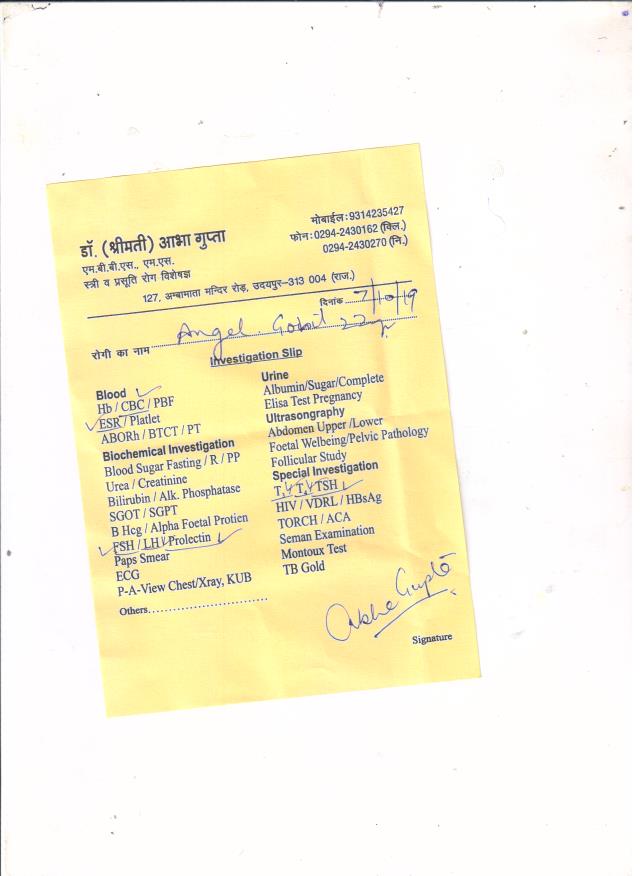 डॉ. (श्रीमती) आभा गुप्ता
एम.बी.बी.एस., एम.एस.
स्त्री व प्रसूति रोग विशेषज्ञ
मोबाईल:9314235427
फोन:0294-2430162 (क्लि.)
0294-2430270 (नि.)
127, अम्बामाता मन्दिर रोड़, उदयपुर–313 004 (राज.)
दिनांक 7/10/19
रोगी का नाम Angel 22yr
Investigation Slip
Blood
Hb / CBC / PBF
ESR / Platlet
ABORh / BTCT / PT
Biochemical Investigation
Blood Sugar Fasting / R / PP
Urea / Creatinine
Bilirubin / Alk. Phosphatase
SGOT / SGPT
B Hcg / Alpha Foetal Protien
FSH / LH / Prolectin
Paps Smear
ECG
P-A-View Chest/Xray, KUB
Others..............................
Urine
Albumin/Sugar/Complete
Elisa Test Pregnancy
Ultrasongraphy
Abdomen Upper /Lower
Foetal Welbeing/Pelvic Pathology
Follicular Study
Special Investigation
T, T, TSH
HIV / VDRL / HBsAg
TORCH / ACA
Seman Examination
Montoux Test
TB Gold
Abha Gupta
Signature